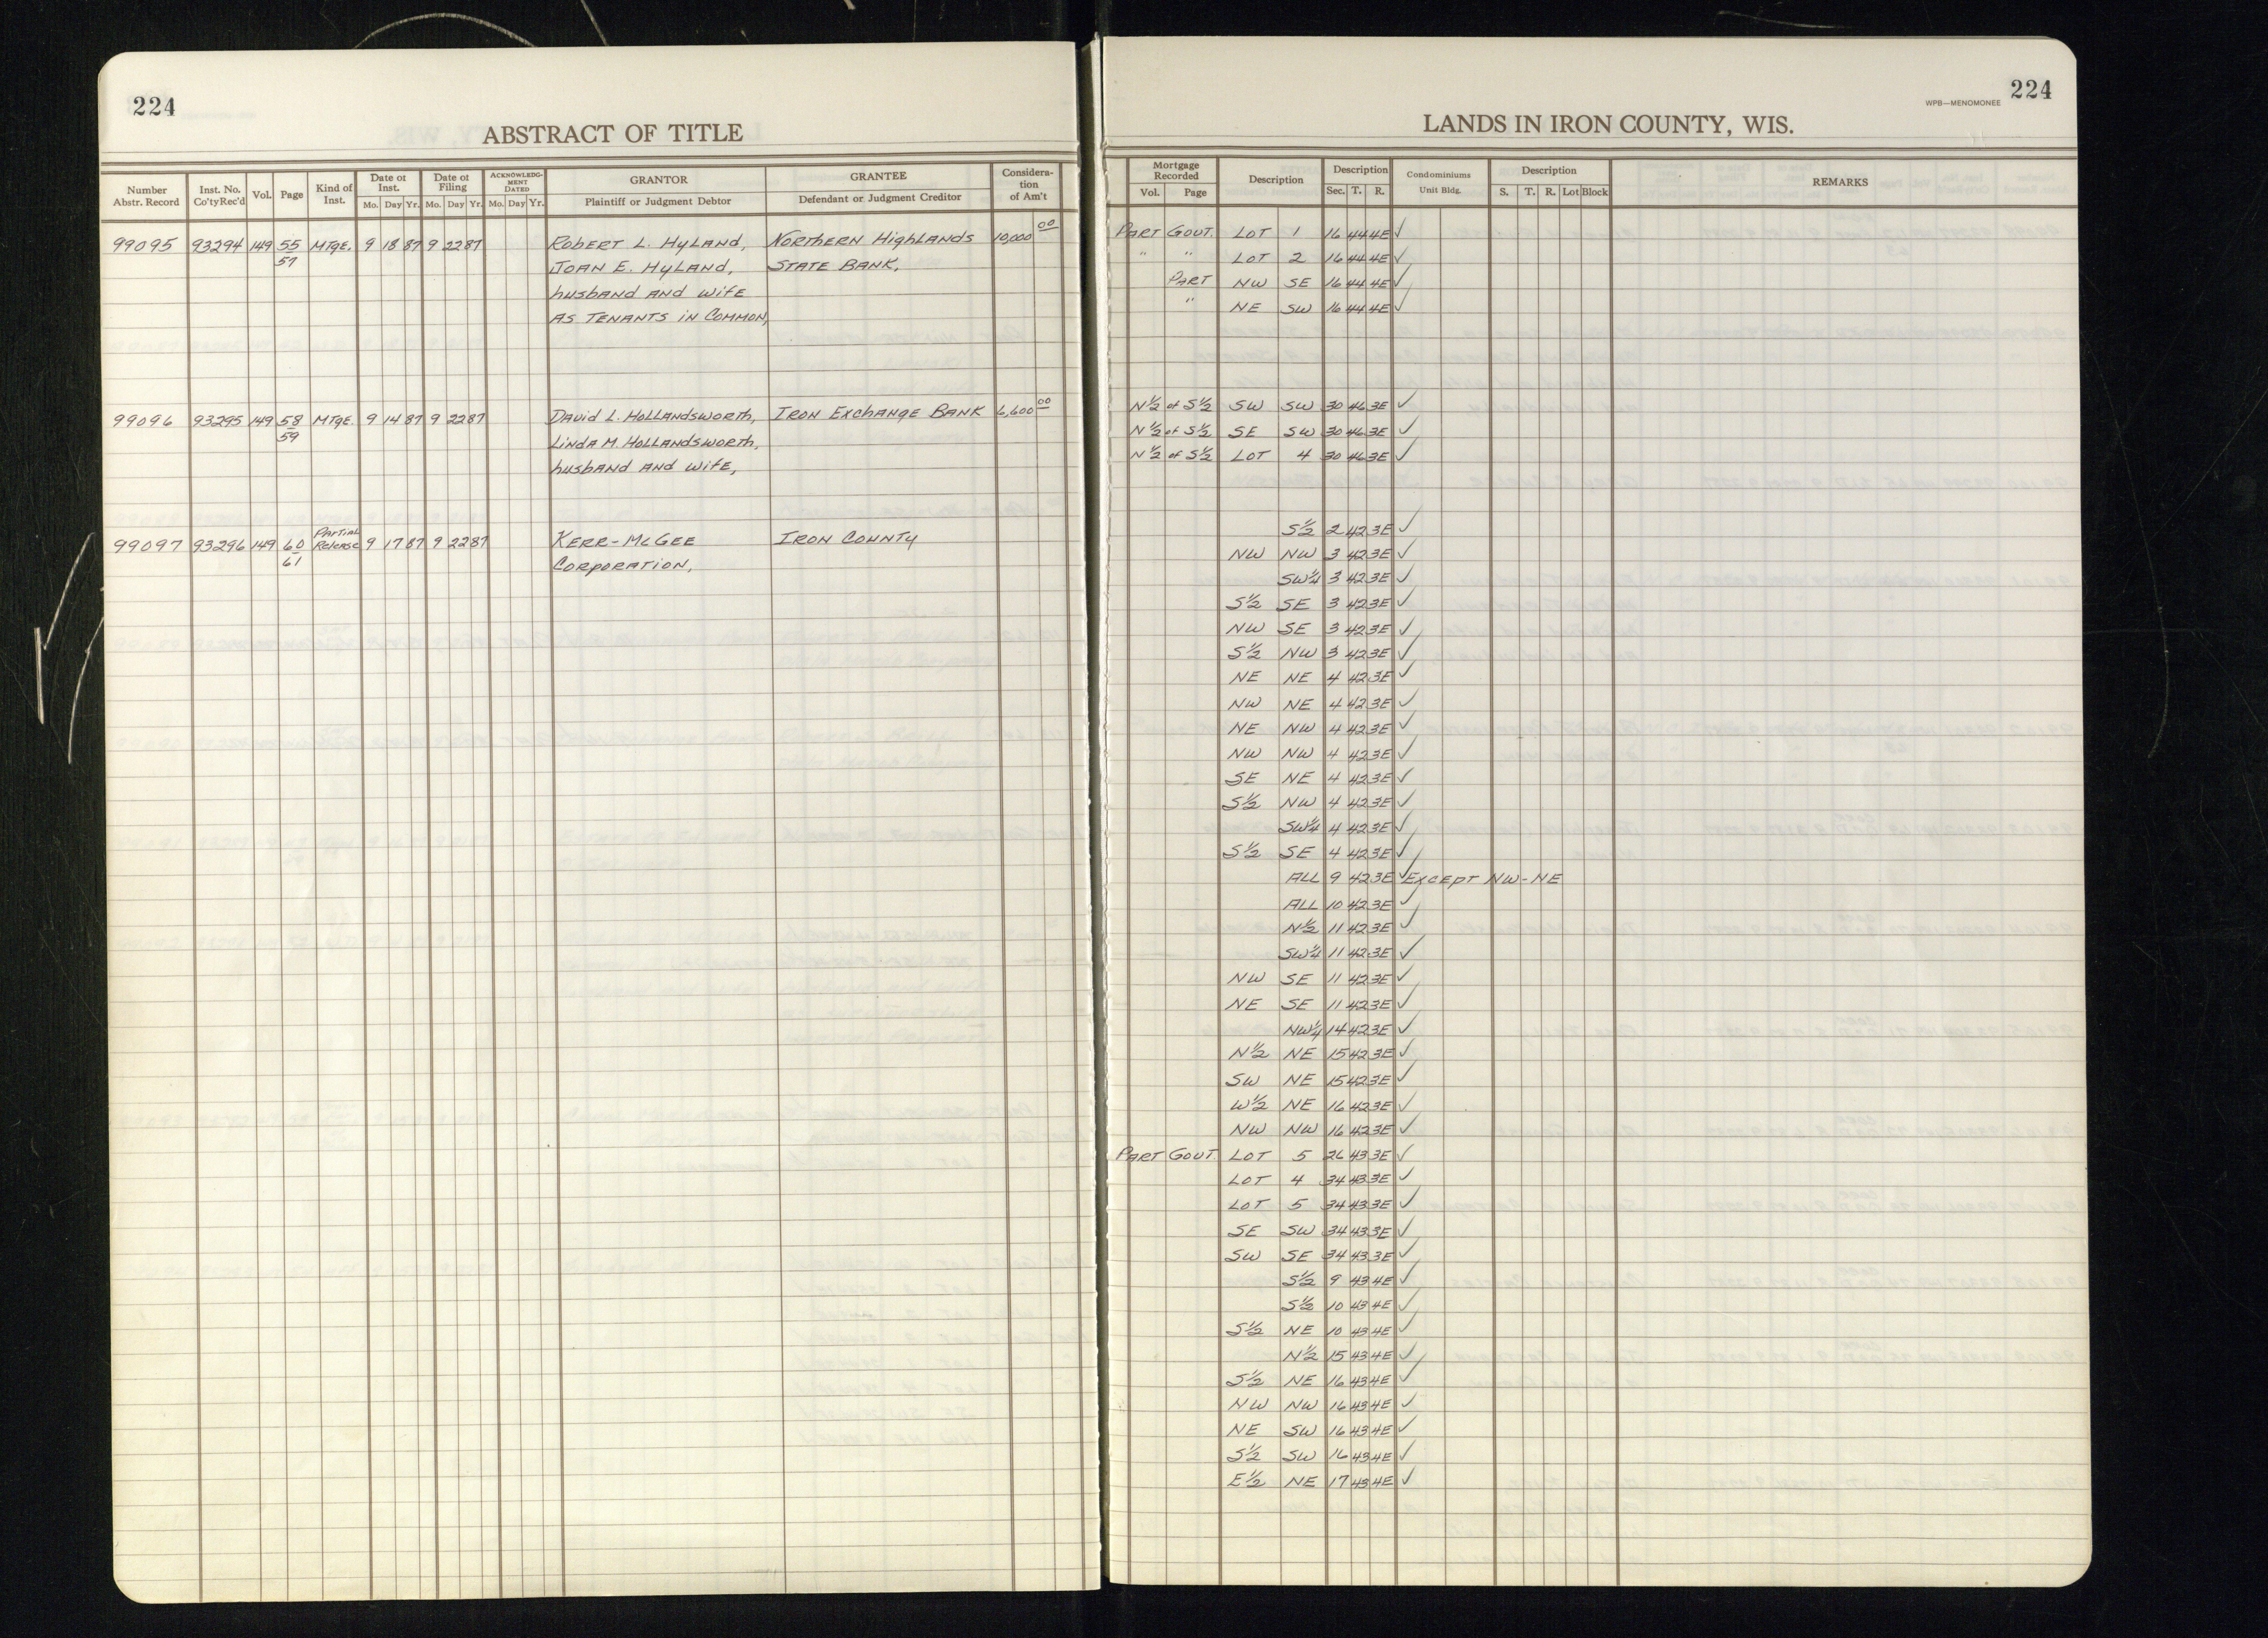 224
ABSTRACT OF TITLE
Number Abstr. Record | Inst. No. Co'ty Rec'd | Vol. | Page | Kind of Inst. | Date of Inst. Mo. Day Yr. | Date of Filing Mo. Day Yr. | ACKNOWLEDGMENT DATED Mo. Day Yr. | GRANTOR Plaintiff or Judgment Debtor | GRANTEE Defendant or Judgment Creditor | Consideration of Am't
99095 93294 149 55 MTGE. 9 18 87 9 22 87 Robert L. Hyland, Northern Highlands 10,000 00
57 Joan E. Hyland, State Bank,
husband and wife
as Tenants in Common,
99096 93295 149 58 MTGE. 9 14 87 9 22 87 David L. Hollandsworth, Iron Exchange Bank 6,600 00
59 Linda M. Hollandsworth,
husband and wife,
99097 93296 149 60 Partial Release 9 17 87 9 22 87 Kerr-McGee Iron County
61 Corporation,
224
WPB—MENOMONEE
LANDS IN IRON COUNTY, WIS.
Mortgage Recorded Vol. Page | Description | Description Sec. T. R. | Condominiums Unit Bldg. | Description S. T. R. Lot Block | REMARKS
Part Gout. Lot 1 16 44 4E ✓
" " Lot 2 16 44 4E ✓
Part NW SE 16 44 4E ✓
" NE SW 16 44 4E ✓
N½ of S½ SW SW 30 46 3E ✓
N½ of S½ SE SW 30 46 3E ✓
N½ of S½ Lot 4 30 46 3E ✓
S½ 2 42 3E ✓
NW NW 3 42 3E ✓
SW¼ 3 42 3E ✓
S½ SE 3 42 3E ✓
NW SE 3 42 3E ✓
S½ NW 3 42 3E ✓
NE NE 4 42 3E ✓
NW NE 4 42 3E ✓
NE NW 4 42 3E ✓
NW NW 4 42 3E ✓
SE NE 4 42 3E ✓
S½ NW 4 42 3E ✓
SW¼ 4 42 3E ✓
S½ SE 4 42 3E ✓
ALL 9 42 3E ✓ Except NW-NE
ALL 10 42 3E ✓
N½ 11 42 3E ✓
SW¼ 11 42 3E ✓
NW SE 11 42 3E ✓
NE SE 11 42 3E ✓
NW¼ 14 42 3E ✓
N½ NE 15 42 3E ✓
SW NE 15 42 3E ✓
W½ NE 16 42 3E ✓
NW NW 16 42 3E ✓
Part Gout. Lot 5 26 43 3E ✓
Lot 4 34 43 3E ✓
Lot 5 34 43 3E ✓
SE SW 34 43 3E ✓
SW SE 34 43 3E ✓
S½ 9 43 4E ✓
S½ 10 43 4E ✓
S½ NE 10 43 4E ✓
N½ 15 43 4E ✓
S½ NE 16 43 4E ✓
NW NW 16 43 4E ✓
NE SW 16 43 4E ✓
S½ SW 16 43 4E ✓
E½ NE 17 43 4E ✓